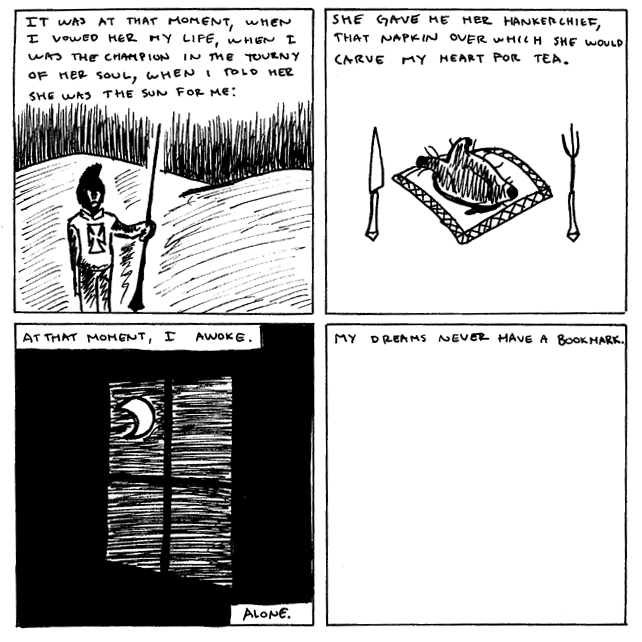 IT WAS AT THAT MOMENT, WHEN
I VOWED HER MY LIFE, WHEN I
WAS THE CHAMPION IN THE TOURNY
OF HER SOUL, WHEN I TOLD HER
SHE WAS THE SUN FOR ME:
SHE GAVE ME HER HANKERCHIEF,
THAT NAPKIN OVER WHICH SHE WOULD
CARVE MY HEART FOR TEA.
AT THAT MOMENT, I AWOKE.
ALONE.
MY DREAMS NEVER HAVE A BOOKMARK.